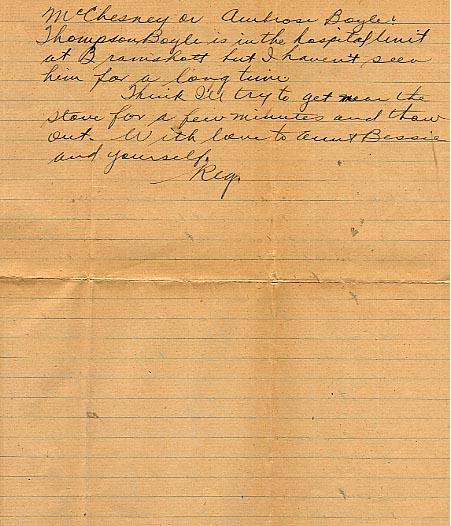 McChesney or Ambrose Boyle.
Thompson Boyle is in the hospital unit
at Bramshott but I haven't seen
him for a long time.
Think I'll try to get near the
stove for a few minutes and thaw
out. With love to Aunt Bessie
and yourself.
Reg.